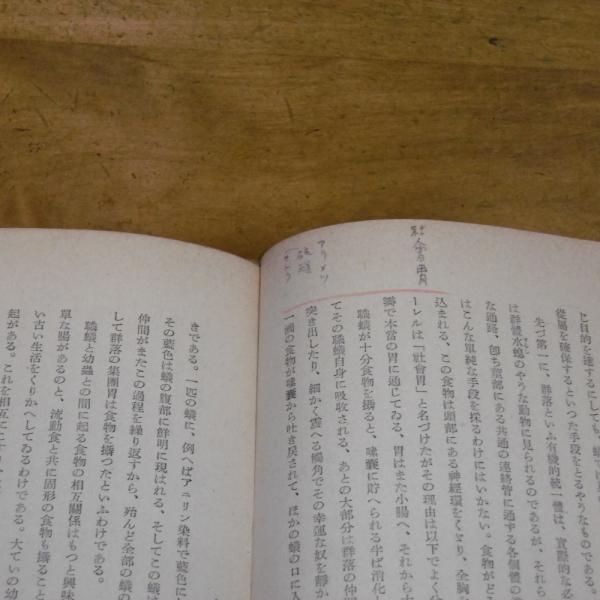 社会胃
アリメツ
と目的を達するにしても、蟻で
從屬を確保するといつた手段をとるやうなものである。
先づ第一に、群落といふ有機的統一體は、實際的な必
は群體水螅のやうな動物に見られるのであるが、それら
な通路、卽ち莖部にある共通の連絡管に通ずる各個體の
はこんな單純な手段を採るわけにはいかない。食物がど
込まれる、この食物は頭部にある神經環をくゞり、全胸
ーレルは「社會胃」と名づけたがその理由は以下でよく
瓣で本當の胃に通じてゐる、胃はまた小腸へ、それから
職蟻が十分食物を攝ると、嗉囊に貯へられる半ば消化
てその職蟻自身に吸收される、あとの大部分は群落の仲
突き出したり、細かく震へる觸角でその幸運な奴を靜か
一滴の食物が嗉囊から吐き戾されて、ほかの蟻の口に入
きである。一匹の蟻に、例へばアニリン染料で藍色に
その藍色は蟻の腹部に鮮明に現はれる、そしてこの蟻
仲間がまたこの過程を繰り返すから、殆んど全部の蟻
して群落の集團胃は食物を攝つたといふわけである。
職蟻と幼蟲との間に起る食物の相互關係はもつと興味
單な腸があるのと、流動食と共に固形の食物も攝ること
い古い生活をくりかへしてゐるわけである。大ていの幼
起がある。これを相互に